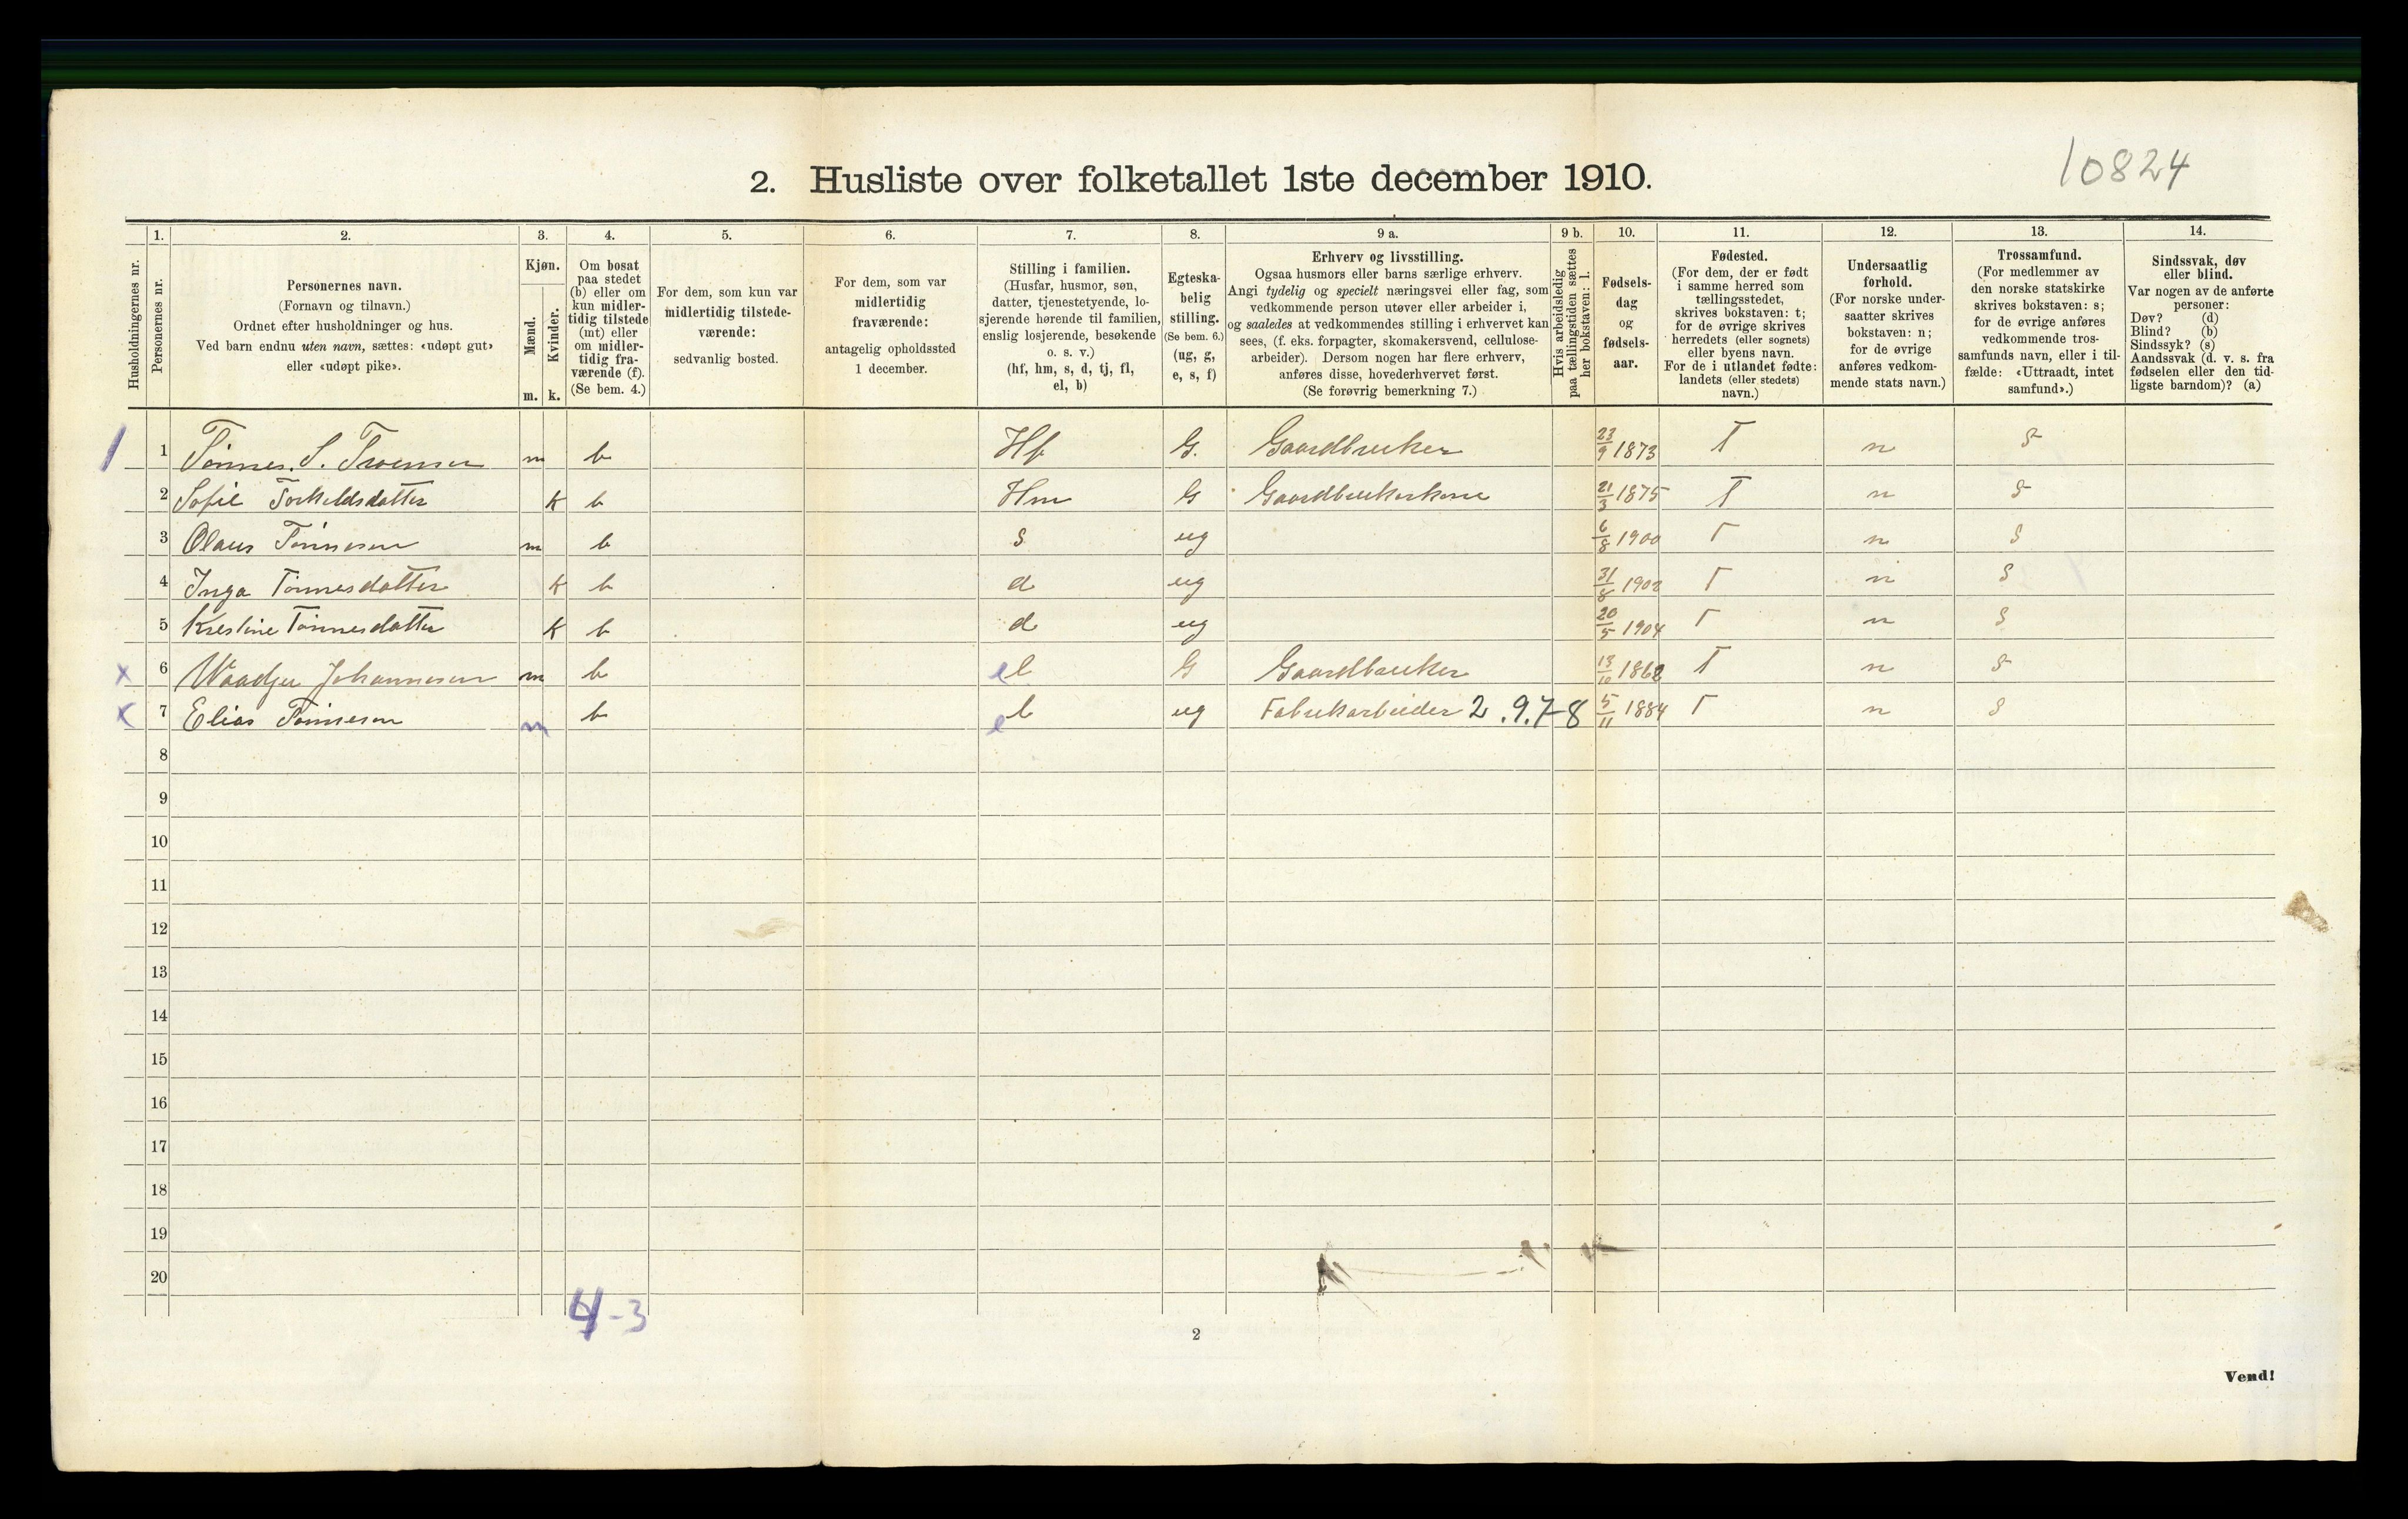 10824
2. Husliste over folketallet 1ste december 1910.
Husholdningernes nr.
1.
Personernes nr.
2.
Personernes navn.
(Fornavn og tilnavn.)
Ordnet efter husholdninger og hus.
Ved barn endnu uten navn, sættes: «udøpt gut»
eller «udøpt pike».
3.
Kjøn.
Mænd.
Kvinder.
m. k.
4.
Om bosat
paa stedet
(b) eller om
kun midler-
tidig tilstede
(mt) eller
om midler-
tidig fra-
værende (f).
(Se bem. 4.)
5.
For dem, som kun var
midlertidig tilstede-
værende:
sedvanlig bosted.
6.
For dem, som var
midlertidig
fraværende:
antagelig opholdssted
1 december.
7.
Stilling i familien.
(Husfar, husmor, søn,
datter, tjenestetyende, lo-
sjerende hørende til familien,
enslig losjerende, besøkende
o. s. v.)
(hf, hm, s, d, tj, fl,
el, b)
8.
Egteska-
belig
stilling.
(Se bem. 6.)
(ug, g,
e, s, f)
9 a.
Erhverv og livsstilling.
Ogsaa husmors eller barns særlige erhverv.
Angi tydelig og specielt næringsvei eller fag, som
vedkommende person utøver eller arbeider i,
og saaledes at vedkommendes stilling i erhvervet kan
sees, (f. eks. forpagter, skomakersvend, cellulose-
arbeider). Dersom nogen har flere erhverv,
anføres disse, hovederhvervet først.
(Se forøvrig bemerkning 7.)
9 b.
Hvis arbeidsledig
paa tællingstiden sættes
her bokstaven: l.
10.
Fødsels-
dag
og
fødsels-
aar.
11.
Fødested.
(For dem, der er født
i samme herred som
tællingsstedet,
skrives bokstaven: t;
for de øvrige skrives
herredets (eller sognets)
eller byens navn.
For de i utlandet fødte:
landets (eller stedets)
navn.)
12.
Undersaatlig
forhold.
(For norske under-
saatter skrives
bokstaven: n;
for de øvrige
anføres vedkom-
mende stats navn.)
13.
Trossamfund.
(For medlemmer av
den norske statskirke
skrives bokstaven: s;
for de øvrige anføres
vedkommende tros-
samfunds navn, eller i til-
fælde: «Uttraadt, intet
samfund».)
14.
Sindssvak, døv
eller blind.
Var nogen av de anførte
personer:
Døv? (d)
Blind? (b)
Sindssyk? (s)
Aandssvak (d. v. s. fra
fødselen eller den tid-
ligste barndom)? (a)
1 1 Tønnes. S. m b Hf G. Gaardbruker 23/9 1873 T n S
2 Sofie Torkeldsdatter k b Hm G Gaardbrukerkone 21/3 1875 T n S
3 Olaus Tønnesen m b s ug 6/8 1900 T n S
4 Inga Tønnesdatter k b d ug 31/8 1902 T n S
5 Krestine Tønnesdatter k b d ug 20/5 1904 T n S
x 6 Johannesen m b el G Gaardbruker 13/10 1862 T n S
x 7 Elias Tønnesen m b el ug Fabrikarbeider 2.9.7-8 5/11 1884 T n S
8
9
10
11
12
13
14
15
16
17
18
19
20
4-3
2
Vend!